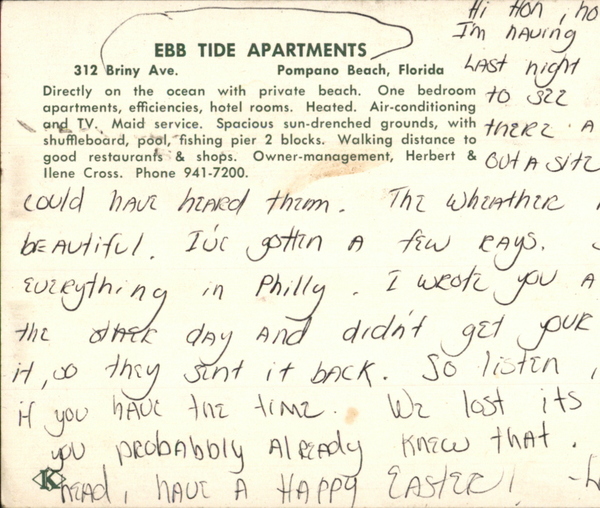 Hi Hon, ho
I'm having
EBB TIDE APARTMENTS
312 Briny Ave. Pompano Beach, Florida
Last night
Directly on the ocean with private beach. One bedroom
apartments, efficiencies, hotel rooms. Heated. Air-conditioning
and TV. Maid service. Spacious sun-drenched grounds, with
shuffleboard, pool, fishing pier 2 blocks. Walking distance to
good restaurants & shops. Owner-management, Herbert &
Ilene Cross. Phone 941-7200.
to see
there. A
out a site
could have heard them. The wheather
beautiful. I've gotten a few rays.
everything in Philly. I wrote you a
the other day and didn't get your
it, so they sent it back. So listen,
if you have the time. We lost its
you probabbly already knew that.
K head, have a Happy Easter! -L